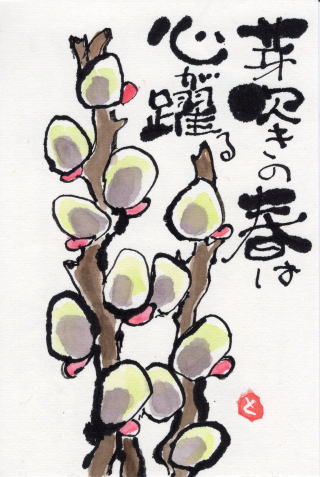 芽吹きの春は
心が躍る
と